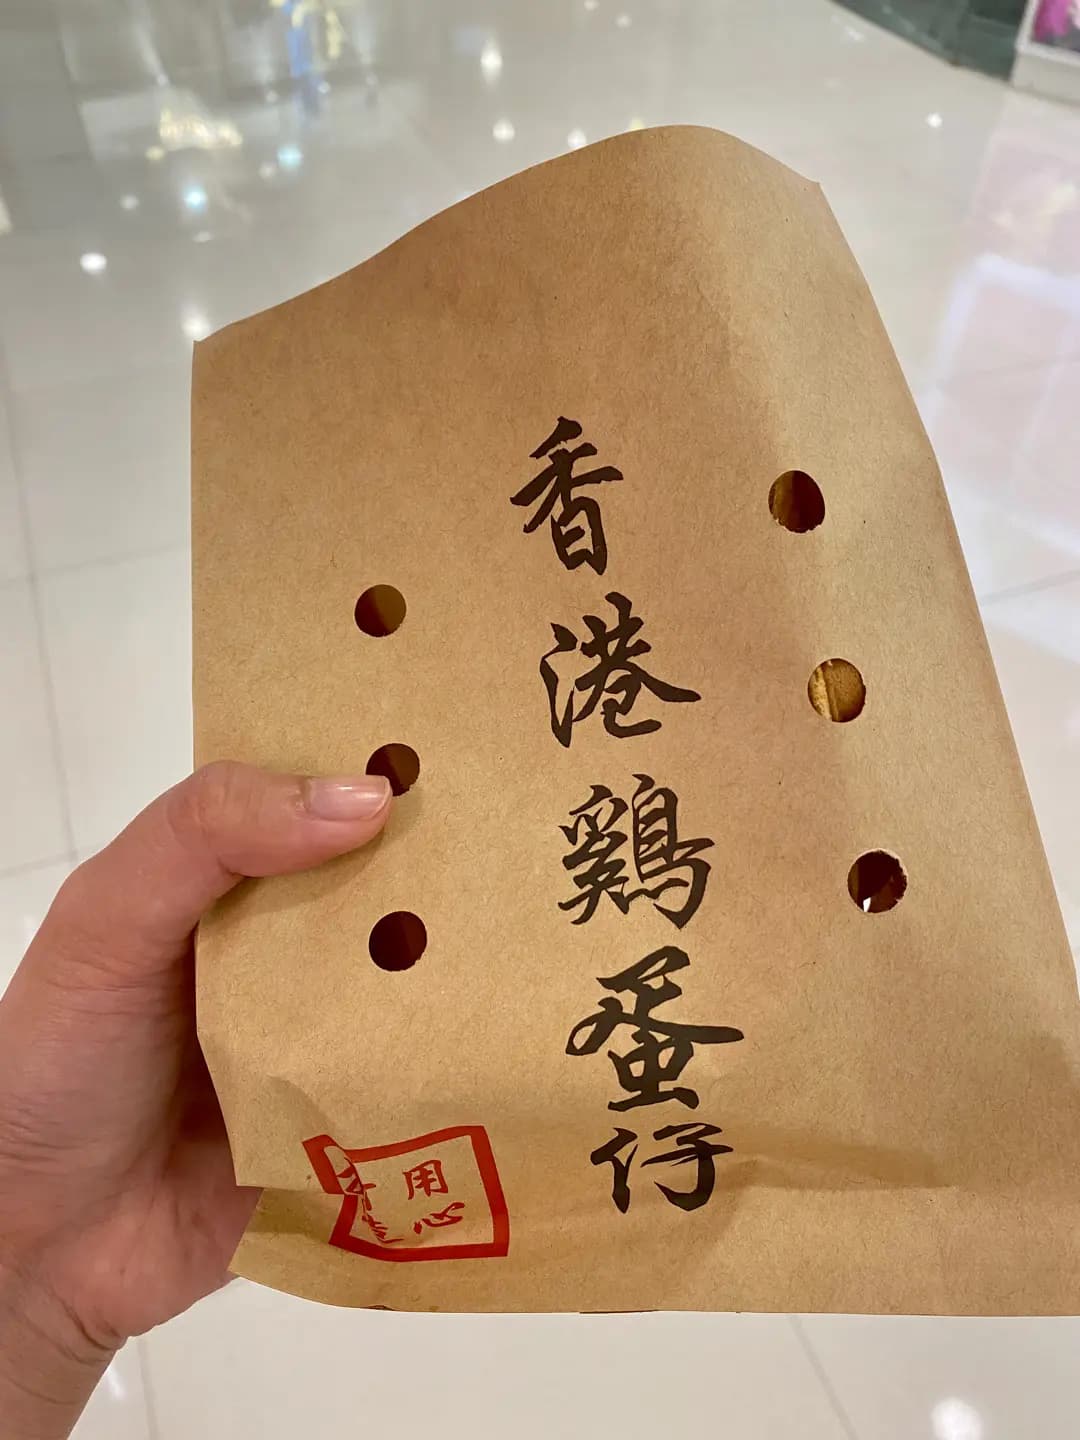 香港鷄蛋仔
用心